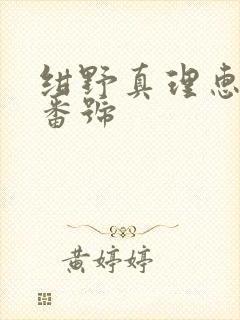 绀野真理恵
番號
黄婷婷